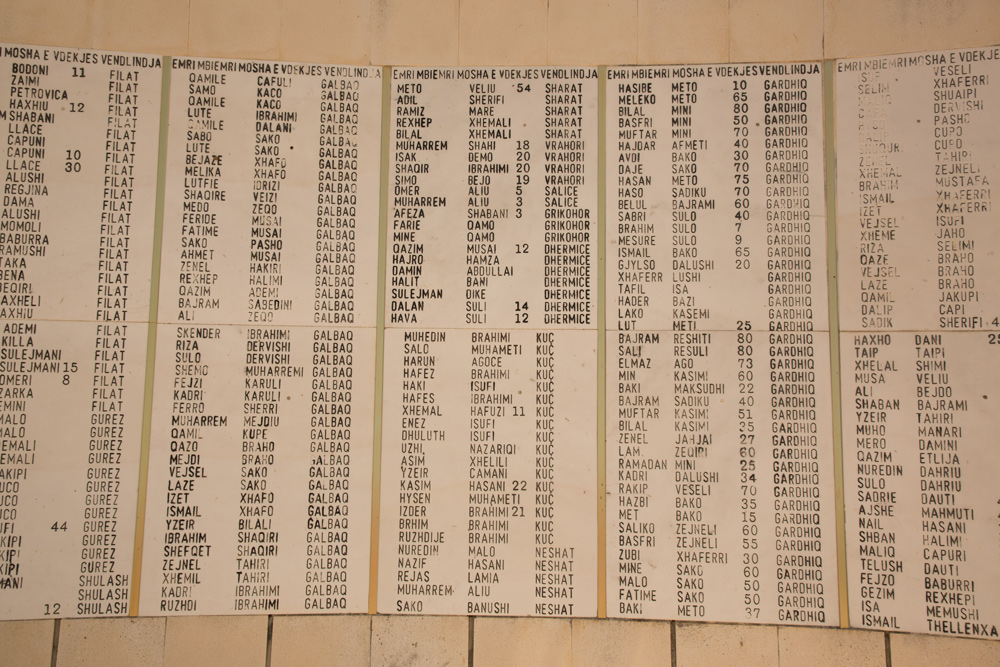 I MOSHA E VDEKJES VENDLINDJA
BODONI 11 FILAT
ZAIMI FILAT
PETROVICA FILAT
HAXHIU 12 FILAT
MSHABANI FILAT
LLACE FILAT
CAPUNI FILAT
CAPUNI 10 FILAT
LLACE 30 FILAT
ALUSHI FILAT
REGJINA FILAT
DAMA FILAT
ALUSHI FILAT
MOMOLI FILAT
BABURRA FILAT
RAMUSHI FILAT
TAKA FILAT
BENA FILAT
BEQIRI FILAT
AXHELI FILAT
AXHIU FILAT
ADEMI FILAT
KILLA FILAT
SULEJMANI FILAT
SULEJMANI 15 FILAT
OMERI 8 FILAT
ZARKA FILAT
EMINI FILAT
MALO GUREZ
MALO GUREZ
EMALI GUREZ
EMALI GUREZ
AKIPI GUREZ
UCO GUREZ
UCO GUREZ
UCO GUREZ
UFI 44 GUREZ
KIPI GUREZ
KIPI GUREZ
KIPI GUREZ
MANI SHULASH
SHULASH
12 SHULASH
EMRI MBIEMRI MOSHA E VDEKJES VENDLINDJA
QAMILE CAFULI GALBAQ
SAMO KACO GALBAQ
QAMILE KACO GALBAQ
LUTE IBRAHIMI GALBAQ
QAMILE DALANI GALBAQ
SABO SAKO GALBAQ
LUTE SAKO GALBAQ
BEJAZE XHAFO GALBAQ
MELIKA XHAFO GALBAQ
LUTFIE IDRIZI GALBAQ
SHAQIRE VEIZI GALBAQ
MEDO ZEQO GALBAQ
FERIDE MUSAI GALBAQ
FATIME MUSAI GALBAQ
SAKO PASHO GALBAQ
AHMET MUSAI GALBAQ
ZENEL HAKIRI GALBAQ
REXHEP HALIMI GALBAQ
QAZIM ADEMI GALBAQ
BAJRAM SABEDINI GALBAQ
ALI ZEQO GALBAQ
SKENDER IBRAHIMI GALBAQ
RIZA DERVISHI GALBAQ
SULO DERVISHI GALBAQ
SHEMO MUHARREMI GALBAQ
FEJZI KARULI GALBAQ
KADRI KARULI GALBAQ
FERRO SHERRI GALBAQ
MUHARREM MEJDIU GALBAQ
QAMIL KUPE GALBAQ
QAZO BRAHO GALBAQ
MEJDI BRAHO GALBAQ
VEJSEL SAKO GALBAQ
LAZE SAKO GALBAQ
IZET XHAFO GALBAQ
ISMAIL XHAFO GALBAQ
YZEIR BILALI GALBAQ
IBRAHIM SHAQIRI GALBAQ
SHEFQET SHAQIRI GALBAQ
ZEJNEL TAHIRI GALBAQ
XHEMIL TAHIRI GALBAQ
KADRI IBRAHIMI GALBAQ
RUZHDI IBRAHIMI GALBAQ
EMRI MBIEMRI MOSHA E VDEKJES VENDLINDJA
METO VELIU 54 SHARAT
ADIL SHERIFI SHARAT
RAMIZ MARE SHARAT
REXHEP XHEMALI SHARAT
BILAL XHEMALI SHARAT
MUHARREM SHAHI 18 VRAHORI
ISAK DEMO 20 VRAHORI
SHAQIR IBRAHIMI 20 VRAHORI
SIMO BEJO 19 VRAHORI
OMER ALIU 5 SALICE
MUHARREM ALIU 3 SALICE
AFEZA SHABANI 3 GRIKOHOR
FARIE QAMO GRIKOHOR
MINE QAMO GRIKOHOR
QAZIM MUSAI 12 DHERMICE
HAJRO HAMZA DHERMICE
DAMIN ABDULLAI DHERMICE
HALIT BANI DHERMICE
SULEJMAN OIKE DHERMICE
DALAN SULI 14 DHERMICE
HAVA SULI 12 DHERMICE
MUHEDIN BRAHIMI KUÇ
SALO MUHAMETI KUÇ
HARUN AGOCE KUÇ
HAFEZ BRAHIMI KUÇ
HAKI ISUFI KUÇ
HAFES IBRAHIMI KUÇ
XHEMAL HAFUZI 11 KUÇ
ENEZ ISUFI KUÇ
DHULUTH ISUFI KUÇ
UZHI NAZARIQI KUÇ
ASIM XHELILI KUÇ
YZEIR CAMANI KUÇ
KASIM HASANI 22 KUÇ
HYSEN MUHAMETI KUÇ
IZDER IBRAHIMI 21 KUÇ
BRHIM BRAHIMI KUÇ
RUZHDIJE BRAHIMI KUÇ
NUREDIN MALO NESHAT
NAZIF HASANI NESHAT
REJAS LAMIA NESHAT
MUHARREM ALIU NESHAT
SAKO BANUSHI NESHAT
EMRI MBIEMRI MOSHA E VDEKJES VENDLINDJA
HASIBE METO 10 GARDHIQ
MELEKO METO 65 GARDHIQ
BILAL MINI 80 GARDHIQ
BASFRI MINI 50 GARDHIQ
MUFTAR MINI 70 GARDHIQ
HAJDAR AFMETI 40 GARDHIQ
AVDI BAKO 30 GARDHIQ
DAJE SAKO 70 GARDHIQ
HASAN METO 75 GARDHIQ
HASO SADIKU 70 GARDHIQ
BELUL BAJRAMI 60 GARDHIQ
SABRI SULO 40 GARDHIQ
BRAHIM SULO 7 GARDHIQ
MESURE SULO 9 GARDHIQ
ISMAIL BAKO 65 GARDHIQ
GJYLSO DALUSHI 20 GARDHIQ
XHAFERR LUSHI GARDHIQ
TAFIL ISA GARDHIQ
HADER BAZI GARDHIQ
LAKO KASEMI GARDHIQ
LUT METI 25 GARDHIQ
BAJRAM RESHITI 80 GARDHIQ
SALI RESULI 80 GARDHIQ
ELMAZ AGO 73 GARDHIQ
MIN KASIMI 60 GARDHIQ
BAKI MAKSUDHI 22 GARDHIQ
BAJRAM SADIKU 40 GARDHIQ
MUFTAR KASIMI 51 GARDHIQ
BILAL KASIMI 35 GARDHIQ
ZENEL JAHJAI 27 GARDHIQ
LAM ZEQIPI 60 GARDHIQ
RAMADAN MINI 25 GARDHIQ
KADRI DALUSHI 34 GARDHIQ
RAKIP VESELI 70 GARDHIQ
HAZBI BAKO 35 GARDHIQ
MET BAKO 15 GARDHIQ
SALIKO ZEJNELI 60 GARDHIQ
BASFRI ZEJNELI 55 GARDHIQ
ZUBI XHAFERRI 30 GARDHIQ
MINE SAKO 60 GARDHIQ
MALO SAKO 50 GARDHIQ
FATIME SAKO 50 GARDHIQ
BAKI METO 37 GARDHIQ
EMRI MBIEMRI MOSHA E VDEKJES
VESELI
SELIM XHAFERRI
SHUAIPI
DERVISHI
PASHO
CUPO
CUFO
ZENEL TAHIPI
XHEMAL ZEJNELI
BRAHIM MUSTAFA
ISMAIL XHAFERRI
IZET XHAFERRI
VEJSEL ISUFI
XHEME JAHO
RIZA SELIMI
QAZE BRAHO
VEJSEL BRAHO
LAZE BRAHO
QAMIL JAKUPI
DALIP CAPI
SADIK SHERIFI 4
HAXHO DANI 25
TAIP TAIPI
XHELAL SHIMI
MUSA VELIU
ALI BEJDO
SHABAN BAJRAMI
YZEIR TAHIRI
MUHO MANARI
MERO DAMINI
QAZIM ETLIJA
NUREDIN DAHRIU
SULO DAHRIU
SADRIE DAUTI
AJSHE MAHMUTI
NAIL HASANI
SHBAN HALIMI
MALIQ CAPURI
TELUSH DAUTI
FEJZO BABURRI
GEZIM REXHEPI
ISA MEMUSHI
ISMAIL THELLENXA